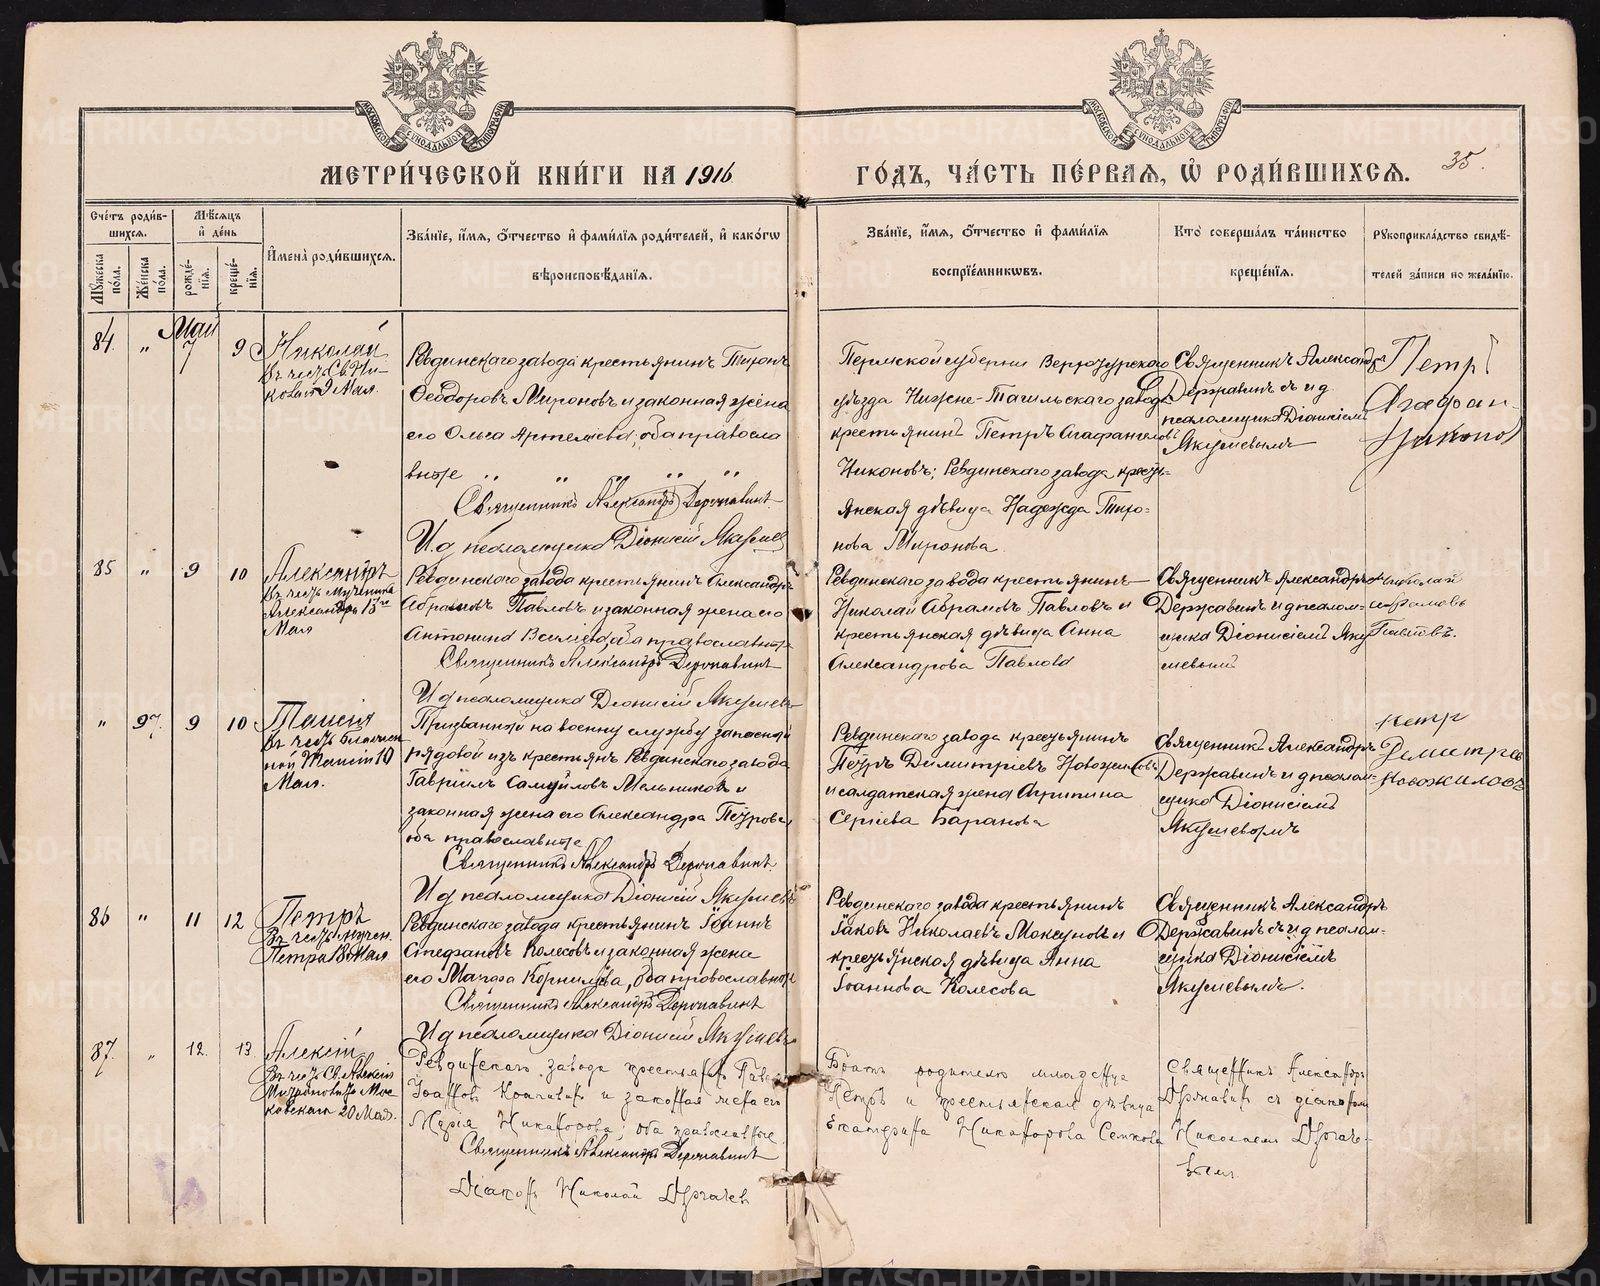 МОСКОВСКОЙ СѴНОДАЛЬНОЙ ТИПОГРАФІИ
МОСКОВСКОЙ СѴНОДАЛЬНОЙ ТИПОГРАФІИ
МЕТРИ́ЧЕСКОЙ КНИ́ГИ НА 1916
ГО́ДЪ, ЧА́СТЬ ПЕ́РВАЯ, Ѡ҆ РОДИ́ВШИХСЯ.
35.
Сче́тъ роди́в-
шихся.
Мѣ́сяцъ
и҆ де́нь
Му́жеска
по́ла.
Же́нска
по́ла.
рожде́-
нія.
креще́-
нія.
И҆мена̀ роди́вшихся.
Зва́ніе, и҆́мя, ѻ҆́тчество и҆ фами́лія роди́телей, и҆ како́гѡ
вѣроисповѣ́данія.
Зва́ніе, и҆́мя, ѻ҆́тчество и҆ фами́лія
воспріе́мникѡвъ.
Кто̀ соверша́лъ та́инство
креще́нія.
Рукоприкла́дство свидѣ́-
телей за́писи по жела́нію.
84. " Май 7 9
Николай
Въ честь Св. Ни-
колая 9 Мая.
Ревдинскаго завода крестьянинъ Тиронъ
Феодоровъ Мироновъ и законная жена
его Ольга Артемиева, оба правосла
вные " " " " "
Священникъ Александръ Державинъ
И д псаломщика Діонисій Якушев
Пермской губерни Верхотурскаго
уѣзда Нижне-Тагильскаго завода
крестьянинъ Петръ Агафангелов
Никоновъ; Ревдинскаго завода кресть-
янская дѣвица Надежда Тиро-
нова Миронова
Священникъ Александръ
Державинъ съ и д
псаломщика Діонисіем
Якушевымъ
Петръ
Агафан.
Никонов
85 " 9 10
Александръ
Въ честь Мученика
Александра 13го
Мая
Ревдинского завода крестьянинъ Александръ
Абрамовъ Павловъ и законная жена его
Антонина Васильева, оба православные
Священникъ Александръ Державинъ
И д псаломщика Діонисій Якушевъ
Ревдинскаго завода крестьянинъ
Николай Абрамовъ Павловъ и
крестьянская дѣвица Анна
Александрова Павлова
Священникъ Александръ
Державинъ и д псалом-
щика Діонисіемъ Яку
шевымъ
Николай
Абрамовъ
Павловъ.
" 97. 9 10
Таисія
Въ честь Блажен
ной Таисіи 10
Мая.
Призванный на военну службу запасный
рядовой изъ крестьянъ Ревдинскаго завода
Гавріилъ Самуйловъ Мельниковъ и
законная жена его Александра Петрова,
оба православные
Священникъ Александръ Державинъ
И д псаломщика Діонисій Якушевъ
Ревдинскаго завода крестьянинъ
Петръ Димитріевъ Новожиловъ
и солдатская жена Агрипина
Сергіева Баранова
Священникъ Александръ
Державинъ и д псалом-
щика Діонисіемъ
Якушевымъ
Петр
Дмитрев
Новожиловъ
86 " 11 12
Петръ
Въ честь Мучен.
Петра 18 Мая
Ревдинскаго завода крестьянинъ Іоаннъ
Стефановъ Колесовъ и законная жена
его Марфа Корнилова, оба православные
Священникъ Александръ Державинъ
И д псаломщика Діонисій Якушевъ
Ревдинскаго завода крестьянинъ
Іаковъ Николаевъ Мокеуновъ и
крестьянская дѣвица Анна
Іоаннова Колесова
Священникъ Александръ
Державинъ съ и д псалом-
щика Діонисіемъ
Якушевымъ.
87. " 12. 13
Алексій
Въ честь Св. Алексія
Митрополита Мос
ковскаго 20 Мая.
Ревдинскаго завода крестьянинъ Павелъ
Іоанновъ и законная жена его
Марія Никанорова; оба православные.
Священникъ Александръ Державинъ
Діаконъ Николай Дрягачев
Братъ родителю младенца
Петръ и крестьянская дѣвица
Екатерина Никанорова Семкова
Священникъ Александръ
Државинъ съ діакономъ
Николаем Дрягаче-
вымъ
METRIKI.GASO-URAL.RU